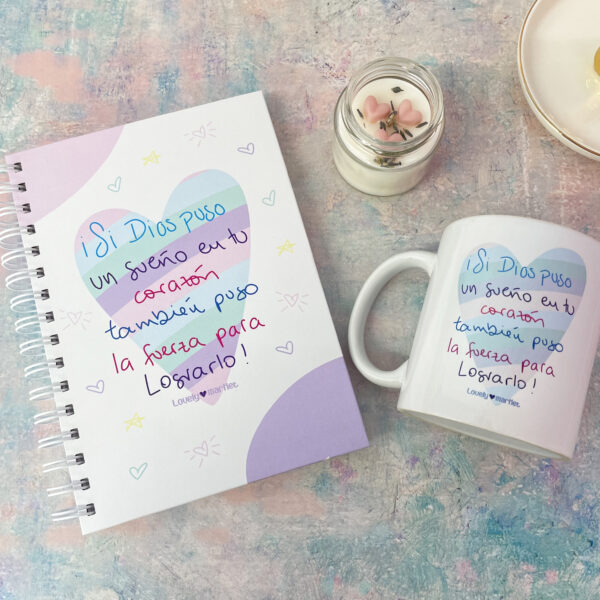 ¡Si Dios puso
un sueño en tu
corazón
también puso
la fuerza para
Lograrlo!
Lovely market
¡Si Dios puso
un sueño en tu
corazón
también puso
la fuerza para
Lograrlo!
Lovely market